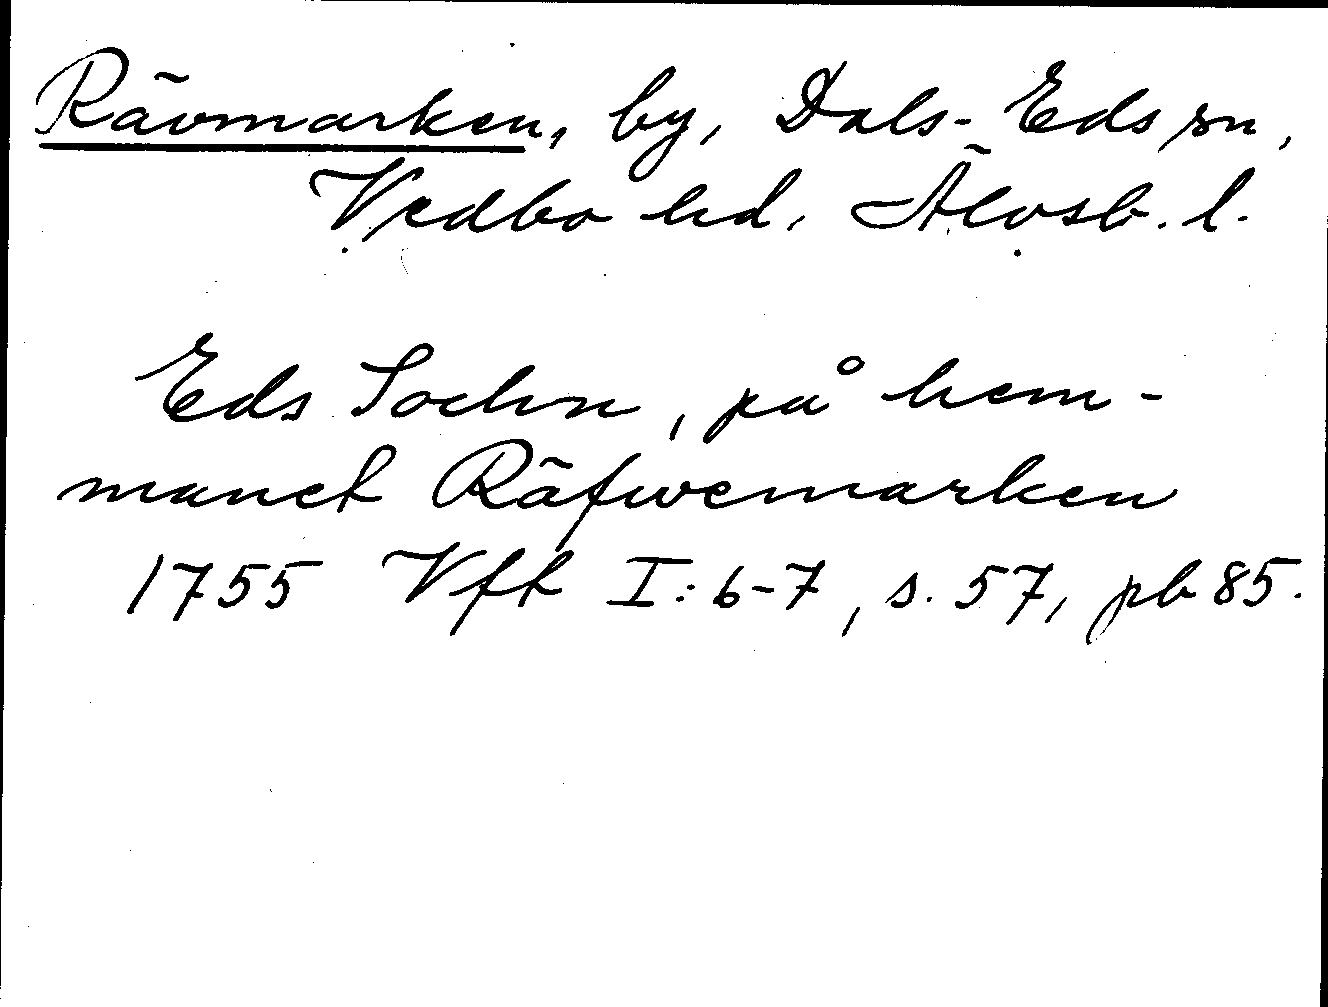 Rävmarken, by, Dals-Eds sn,
Vedbo hd, Älvsb. l.
Eds Sochn, på hem-
manet Räfwemarken
1755 Vft I:6-7, s. 57, pb 85.